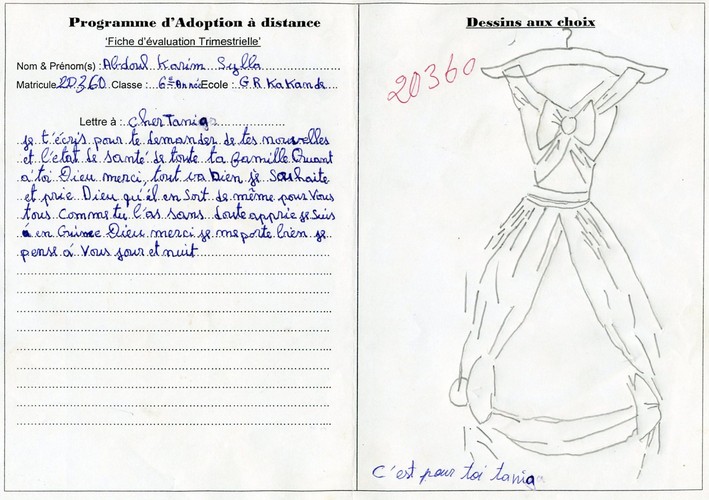 Programme d'Adoption à distance
'Fiche d'évaluation Trimestrielle'
Nom & Prénom(s) : Abdoul Karim Sylla
Matricule 20360 Classe : 6è Année Ecole : G.R. Kakande
Lettre à : cher Taniga
je t'écris pour te demander de tes nouvelles
et l'état de santé de toute ta famille Quant
à toi Dieu merci, tout va bien je souhaite
et prie Dieu qu'il en sort de même pour Vous
tous Comme tu l'as sans doute appris je suis
en Guinee Dieu merci je me porte bien je
pense à Vous jour et nuit
Dessins aux choix
20360
C'est pour toi taniga